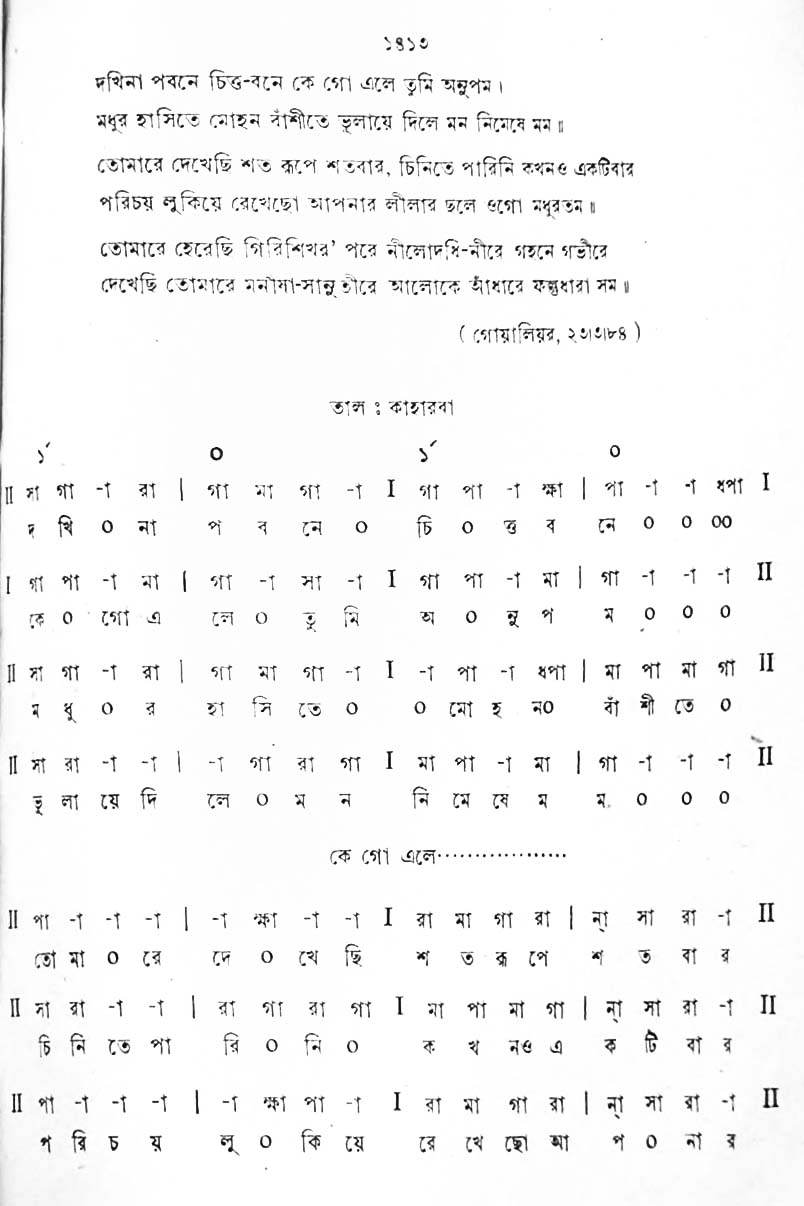 ১৪১৩
দখিনা পবনে চিত্ত-বনে কে গো এলে তুমি অনুপম।
মধুর হাসিতে মোহন বাঁশীতে ভুলায়ে দিলে মন নিমেষে মম॥
তোমারে দেখেছি শত রূপে শতবার, চিনিতে পারিনি কখনও একটিবার
পরিচয় লুকিয়ে রেখেছো আপনার লীলার ছলে ওগো মধুরতম॥
তোমারে হেরেছি গিরিশিখর' পরে নীলোদধি-নীরে গহনে গভীরে
দেখেছি তোমারে মনীষা-সানু তীরে আলোকে আঁধারে ফল্গুধারা সম॥
( গোয়ালিয়র, ২৩।৩।৮৪ )
তাল ঃ কাহারবা
১´ ০ ১´ ০
II সা গা -া রা | গা মা গা -া I গা পা -া ক্ষা | পা -া -া ধপা I
দ খি ০ না প ব নে ০ চি ০ ত্ত ব নে ০ ০ ০০
I গা পা -া মা | গা -া সা -া I গা পা -া মা | গা -া -া -া II
কে ০ গো এ লে ০ তু মি অ ০ নু প ম ০ ০ ০
II সা গা -া রা | গা মা গা -া I -া পা -া ধপা | মা পা মা গা II
ম ধু ০ র হা সি তে ০ ০ মো হ ন০ বাঁ শী তে ০
II সা রা -া -া | -া গা রা গা I মা পা -া মা | গা -া -া -া II
ভু লা য়ে দি লে ০ ম ন নি মে ষে ম ম ০ ০ ০
কে গো এলে··················
II পা -া -া -া | -া ক্ষা -া -া I রা মা গা রা | ন্া সা রা -া II
তো মা ০ রে দে ০ খে ছি শ ত রূ পে শ ত বা র
II সা রা -া -া | রা গা রা গা I মা পা মা গা | ন্া সা রা -া II
চি নি তে পা রি ০ নি ০ ক খ নও এ ক টি বা র
II পা -া -া -া | -া ক্ষা পা -া I রা মা গা রা | ন্া সা রা -া II
প রি চ য় লু ০ কি য়ে রে খে ছো আ প ০ না র